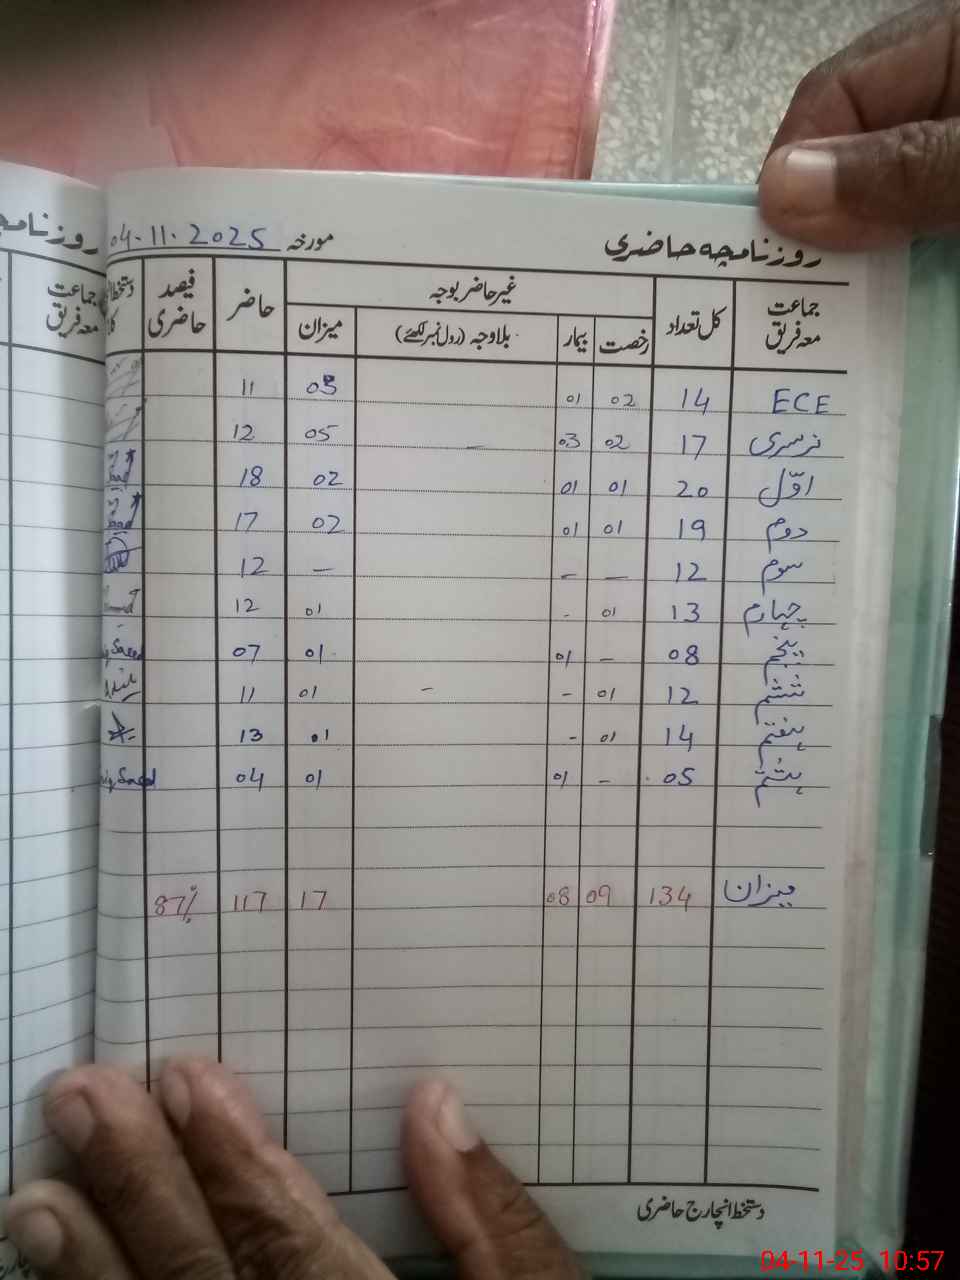 روزنامچہ حاضری مورخہ 04.11.2025
جماعت معہ فریق کل تعداد غیر حاضر بوجہ حاضر فیصد حاضری
رخصت بیمار بلاوجہ (رول نمبر لکھئے) میزان
ECE 14 02 01 03 11
نرسری 17 02 03 — 05 12
اوّل 20 01 01 02 18
دوم 19 01 01 02 17
سوم 12 — — — 12
چہارم 13 01 - 01 12
پنجم 08 — 01 01 07
ششم 12 01 - - 01 11
ہفتم 14 01 - 01 13
ہشتم 05 - 01 01 04
میزان 134 09 08 17 117 87%
دستخط انچارج حاضری
جماعت
معہ فریق
04-11-25 10:57